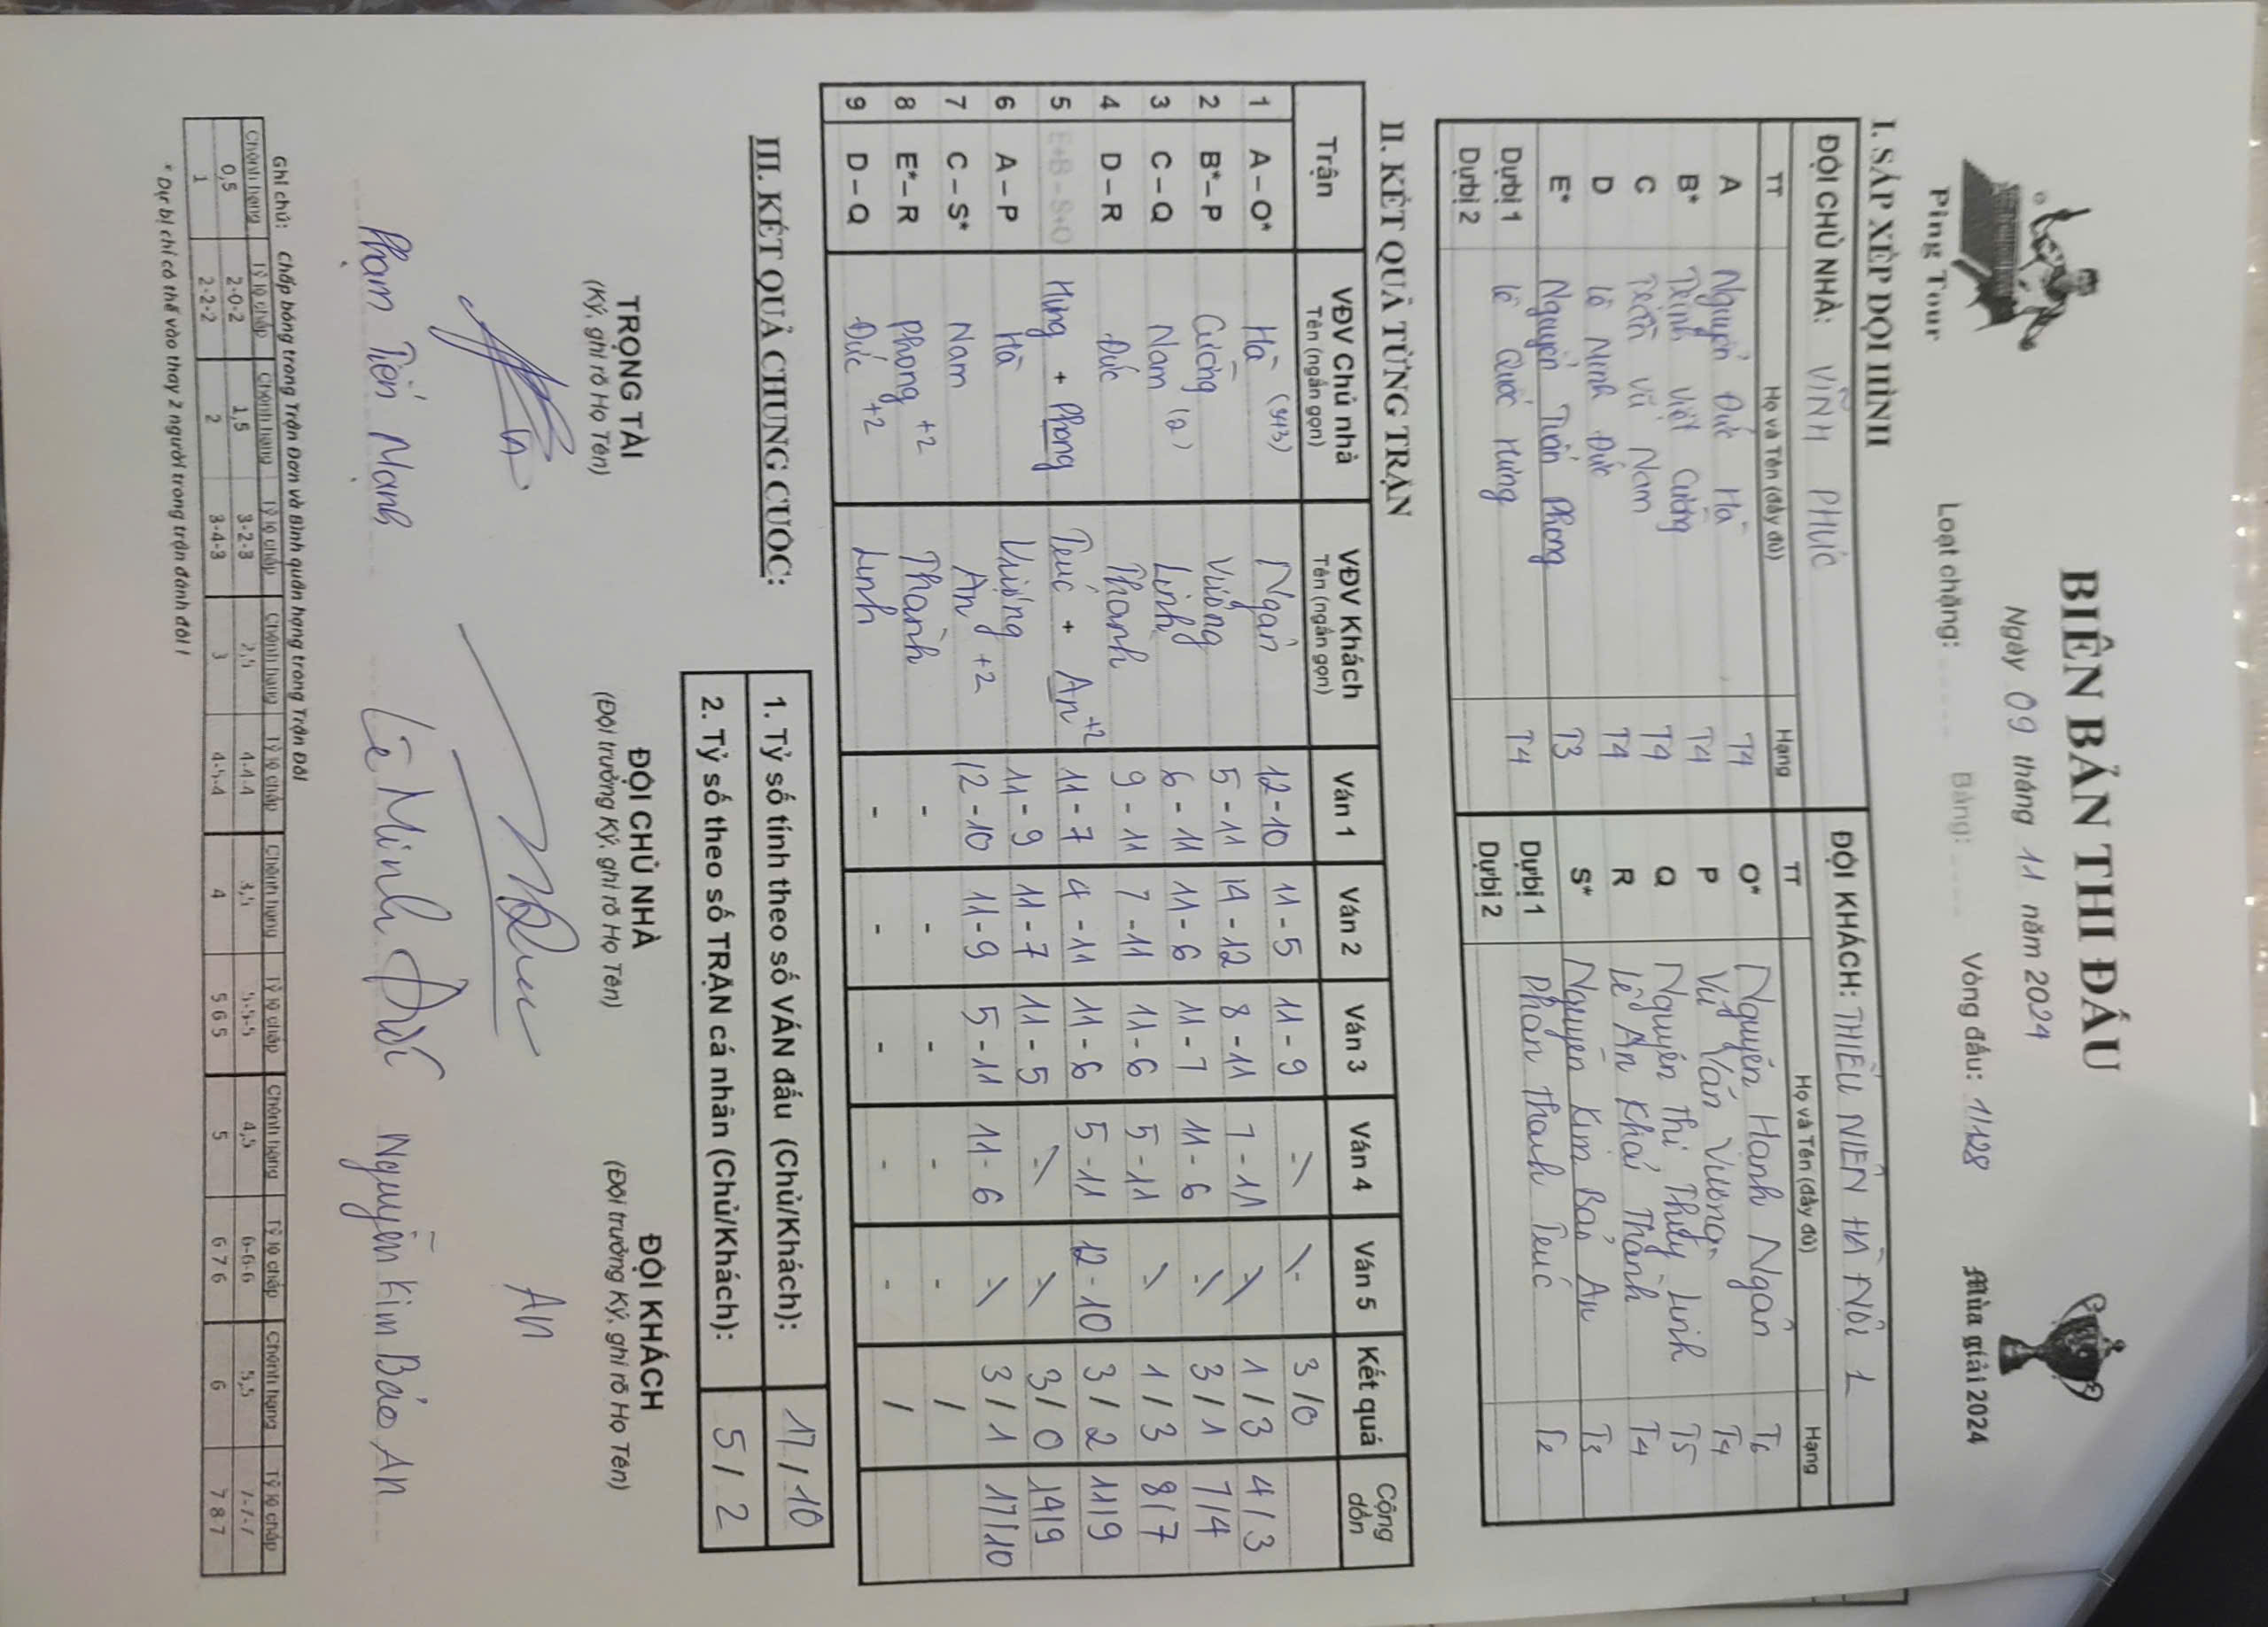 BIÊN BẢN THI ĐẤU
Ngày 09 tháng 11 năm 2024
Loạt chặng: Bảng: Vòng đấu: 1/128
Ping Tour
Mùa giải 2024
I. SẮP XẾP ĐỘI HÌNH
ĐỘI CHỦ NHÀ: VĨNH PHÚC
TT Họ và Tên (đầy đủ) Hạng
A Nguyễn Đức Hà T4
B* Trịnh Việt Cường T4
C Trần Vũ Nam T4
D Lê Minh Đức T4
E* Nguyễn Tuấn Phong T3
Dự bị 1 Lê Quốc Hưng T4
Dự bị 2
ĐỘI KHÁCH: THIẾU NIÊN HÀ NỘI 1
TT Họ và Tên (đầy đủ) Hạng
O* Nguyễn Hạnh Ngân T6
P Vũ Văn Vương T4
Q Nguyễn Thị Thùy Linh T5
R Lê An Khải Thành T4
S* Nguyễn Kim Bảo An T3
Dự bị 1 Phan Thanh Trúc T2
Dự bị 2
II. KẾT QUẢ TỪNG TRẬN
Trận VĐV Chủ nhà Tên (ngắn gọn) VĐV Khách Tên (ngắn gọn) Ván 1 Ván 2 Ván 3 Ván 4 Ván 5 Kết quả Cộng dồn
1 A – O* Hà (343) Ngân 12-10 11-5 11-9 - - 3/0
2 B*– P Cường Vương 5-11 14-12 8-11 7-11 - 1/3 4/3
3 C – Q Nam (2) Linh 6-11 11-6 11-7 11-6 - 3/1 7/4
4 D – R Đức Thành 9-11 7-11 11-6 5-11 - 1/3 8/7
5 E+B – S+O Hưng + Phong Trúc + An +2 11-7 4-11 11-6 5-11 12-10 3/2 11/9
6 A – P Hà Vương 11-9 11-7 11-5 - - 3/0 14/9
7 C – S* Nam An +2 12-10 11-9 5-11 11-6 - 3/1 17/10
8 E*– R Phong +2 Thành - - - - - /
9 D – Q Đức +2 Linh - - - - - /
III. KẾT QUẢ CHUNG CUỘC:
1. Tỷ số tính theo số VÁN đấu (Chủ/Khách): 17/10
2. Tỷ số theo số TRẬN cá nhân (Chủ/Khách): 5/2
TRỌNG TÀI ĐỘI CHỦ NHÀ ĐỘI KHÁCH
(Ký, ghi rõ Họ Tên) (Đội trưởng Ký, ghi rõ Họ Tên) (Đội trưởng Ký, ghi rõ Họ Tên)
An
Phạm Tiến Mạnh Lê Minh Đức Nguyễn Kim Bảo An
Ghi chú: Chấp bóng trong Trận Đơn và Bình quân hạng trong Trận Đôi
Chênh hạng Tỷ lệ chấp Chênh hạng Tỷ lệ chấp Chênh hạng Tỷ lệ chấp Chênh hạng Tỷ lệ chấp Chênh hạng Tỷ lệ chấp Chênh hạng Tỷ lệ chấp
0,5 2-0-2 1,5 3-2-3 2,5 4-4-4 3,5 5-5-5 4,5 6-6-6 5,5 7-7-7
1 2-2-2 2 3-4-3 3 4-5-4 4 5 6 5 5 6 7 6 6 7 8 7
* Dự bị chỉ có thể vào thay 2 người trong trận đánh đôi !